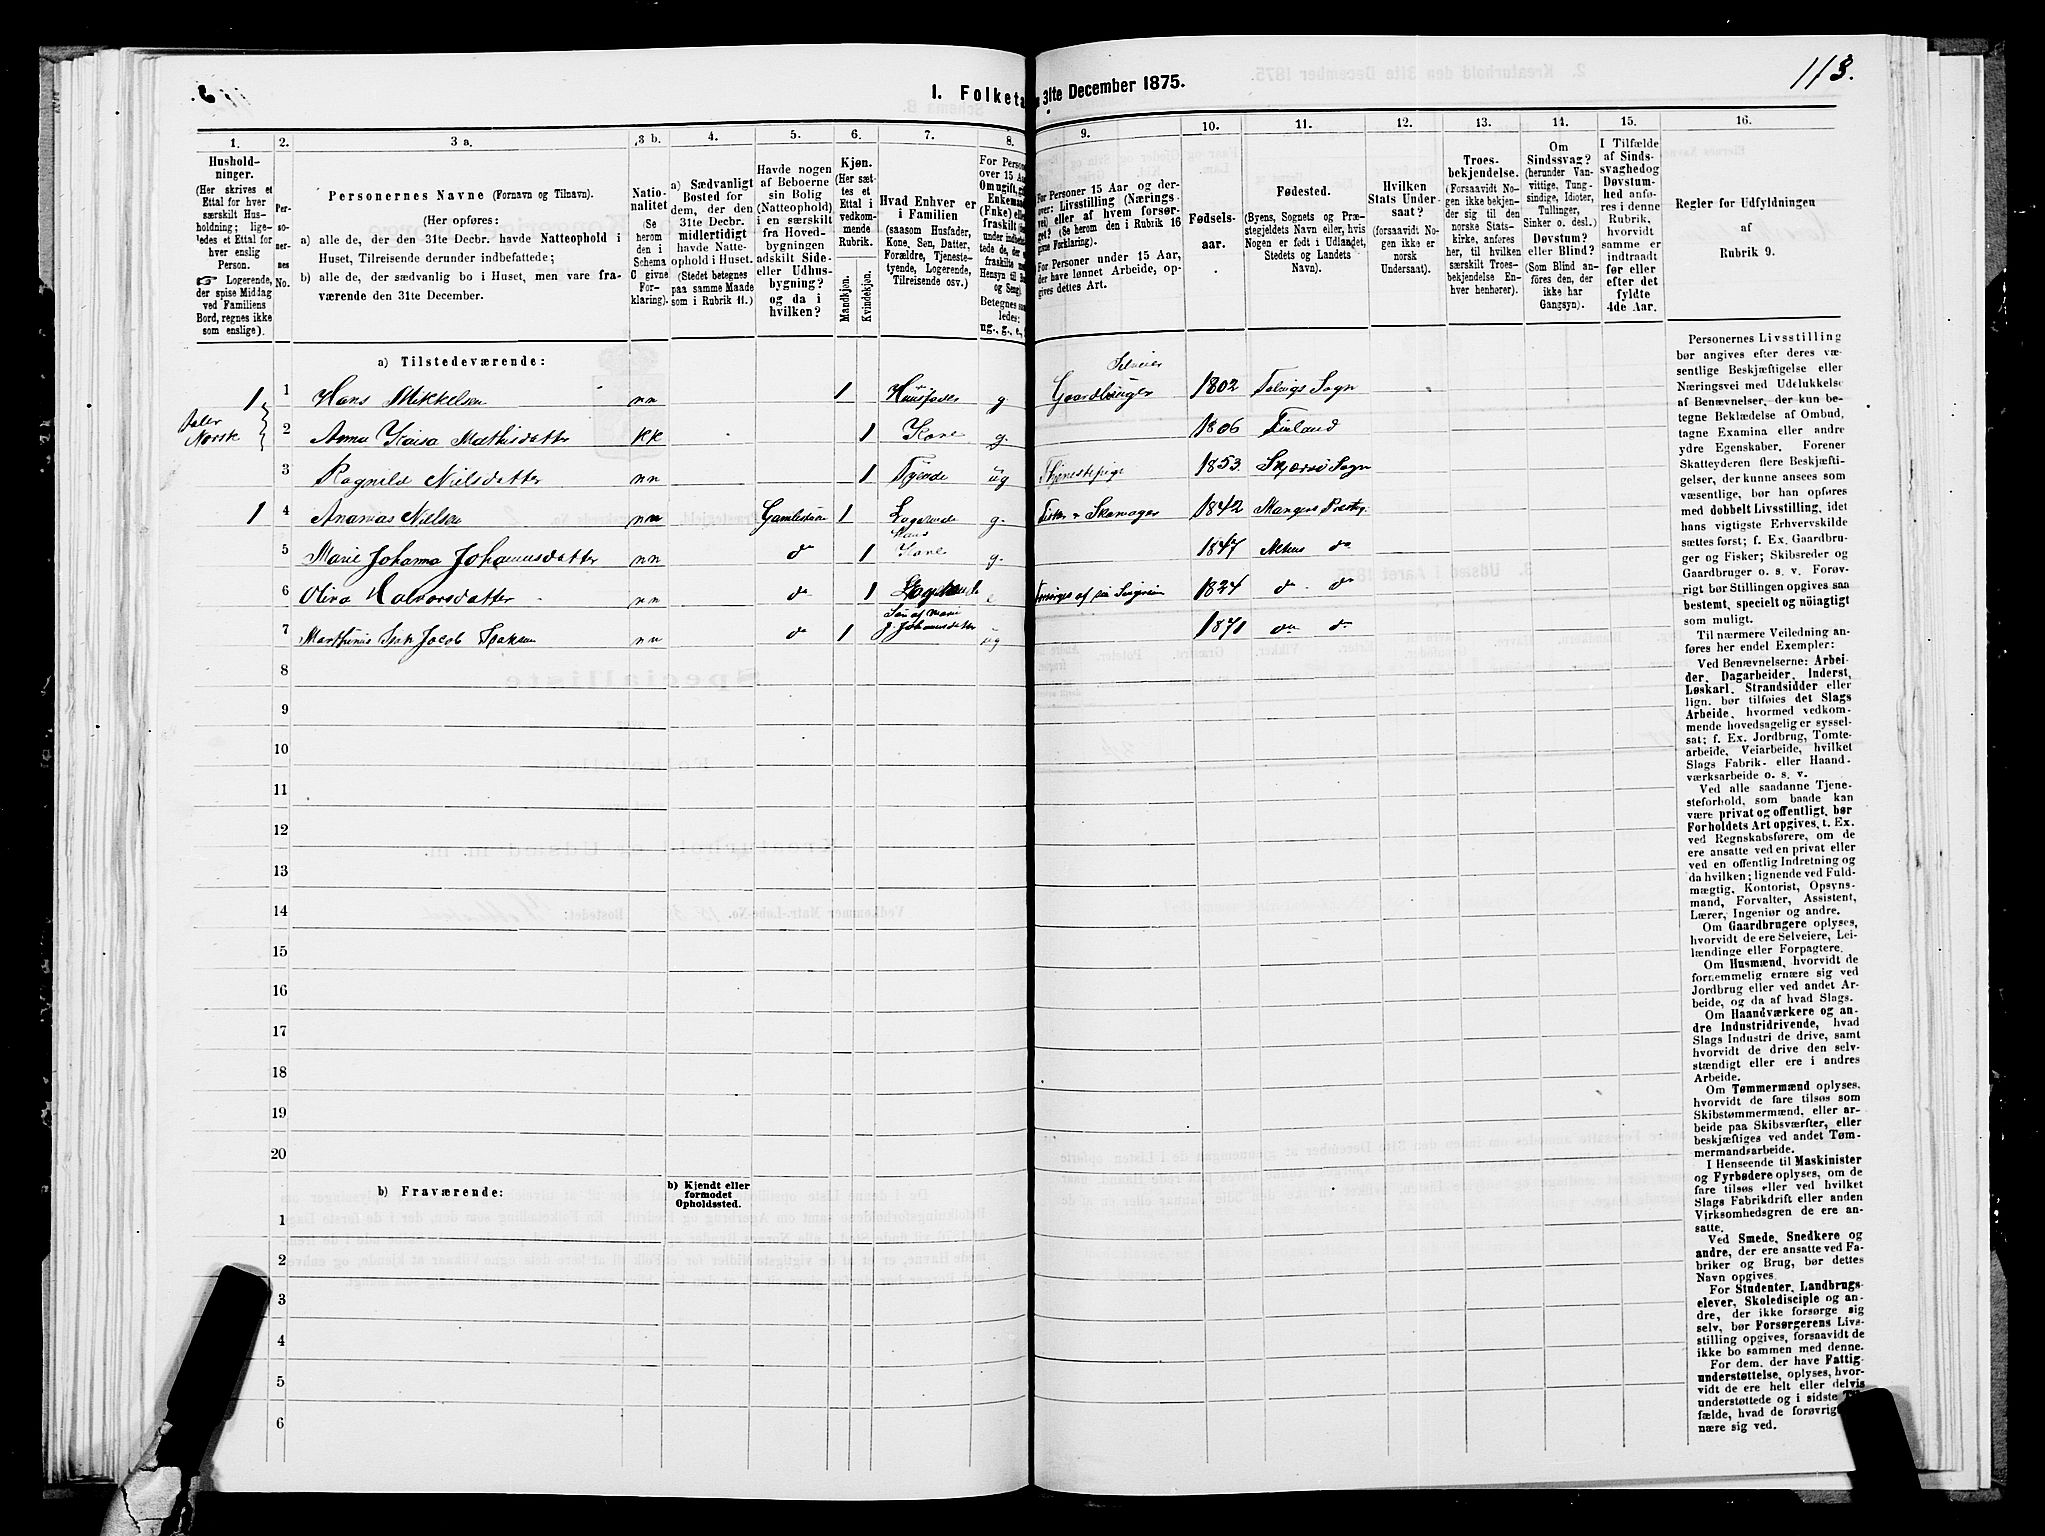 113.
I. Folketa
31te December 1875.
1. 2. 3 a. 3 b. 4. 5. 6. 7. 8. 9. 10. 11. 12. 13. 14. 15. 16.
Hushold-
ninger.
(Her skrives et
Ettal for hver
særskilt Hus-
holdning; lige-
ledes et Ettal for
hver enslig
Person.
☞ Logerende,
der spise Middag
ved Familiens
Bord, regnes ikke
som enslige).
Per-
so-
ner-
nes
No.
Personernes Navne (Fornavn og Tilnavn).
(Her opføres:
a) alle de, der den 31te Decbr. havde Natteophold i
Huset, Tilreisende derunder indbefattede;
b) alle de, der sædvanlig bo i Huset, men vare fra-
værende den 31te December.
Natio-
nalitet
(Se
herom
den i
Schema
C givne
For-
klaring).
a) Sædvanligt
Bosted for
dem, der den
31te Decbr.
midlertidigt
havde Natte-
ophold i Huset.
(Stedet betegnes
paa samme Maade
som i Rubrik 11.)
Havde nogen
af Beboerne
sin Bolig
(Natteophold)
i en særskilt
fra Hoved-
bygningen
adskilt Side-
eller Udhus-
bygning?
og da i
hvilken?
Kjøn.
(Her sæt-
tes et
Ettal i
vedkom-
mende
Rubrik.
Mandkjøn.
Kvindekjøn.
Hvad Enhver er
i Familien
(saasom Husfader,
Kone, Søn, Datter,
Forældre, Tjeneste-
tyende, Logerende,
Tilreisende osv.)
For Person
over 15 Aar
Om ugift, g
Enkema
(Fnke) elle
fraskilt
Hensyn til
og Seng
Betegnes
ledes:
ug., g., e.,
For Personer 15 Aar og der-
over: Livsstilling (Nærings-
vei) eller af hvem forsør-
get? (Se herom den i Rubrik 16
givne Forklaring).
For Personer under 15 Aar,
der have lønnet Arbeide, op-
gives dettes Art.
Fødsels-
aar.
Fødested.
(Byens, Sognets og Præ-
stegjeldets Navn eller, hvis
Nogen er født i Udlandet,
Stedets og Landets
Navn).
Hvilken
Stats Under-
saat?
(forsaavidt No-
gen ikke er
norsk
Undersaat).
Troes-
bekjendelse.
(Forsaavidt No-
gen ikke bekjen-
der sig til den
norske Stats-
kirke, anføres
her, til hvilken
særskilt Troes-
bekjendelse En-
hver henhører).
Om
Sindssvag?
(herunder Van-
vittige, Tung-
sindige, Idioter,
Tullinger,
Sinker o. desl.)
Døvstum?
eller Blind?
(Som Blind an-
føres den, der
ikke har
Gangsyn).
I Tilfælde
af Sinds-
svaghed og
Døvstum-
hed anfø-
res i denne
Rubrik,
hvorvidt
samme er
indtraadt
før eller
efter det
fyldte
4de Aar.
Regler for Udfyldningen
af
Rubrik 9.
a) Tilstedeværende:
Selveier
1 1 Hans Mikkelsen nn 1 Huusfader g. Gaardbruger 1802 Talvigs Sogn
taler
Norsk
2 Anna Kaisa Mathisdatter KK 1 Kone g. 1806 Finland
3 Ragnild Nielsdatter nn 1 Tyende ug Tjenestepige 1853. Skjærvø Sogn
1 4 Ananias Nielsen nn Gamlestuen 1 Logerende g. Fisker & Skomager 1842 Mangers Prestg.
5 Marie Johanna Johannusdatter nn do 1 Hans Kone g. 1847 Altens do
6 Oliva Halvorsdatter nn do 1 Logerende e 1824 do do
7 Marthinus Jacob Isaksen nn do 1 Søn af Marie J. Johannusdatter ug 1871 do do
8
9
10
11
12
13
14
15
16
17
18
19
20
b) Fraværende:
b) Kjendt eller
formodet
Opholdssted.
1
2
3
4
5
6
Personernes Livsstilling
bør angives efter deres væ-
sentlige Beskjæftigelse eller
Næringsvei med Udelukkelse
af Benævnelser, der kun be-
tegne Beklædelse af Ombud,
tagne Examina eller andre
ydre Egenskaber. Forener
Skatteyderen flere Beskjæfti-
gelser, der kunne ansees som
væsentlige, bør han opføres
med dobbelt Livsstilling, idet
hans vigtigste Erhvervskilde
sættes først; f. Ex. Gaardbru-
ger og Fisker; Skibsreder og
Gaardbruger o. s. v. Forøv-
rigt bør Stillingen opgives saa
bestemt, specielt og nöiagtig
som muligt.
Til nærmere Veiledning an-
føres her endel Exempler:
Ved Benævnelserne: Arbei-
der, Dagarbeider, Inderst,
Løskarl, Strandsidder eller
lign. bør tilføies det Slags
Arbeide, hvormed vedkom-
mende hovedsagelig er syssel-
sat; f. Ex. Jordbrug, Tomte-
arbeide, Veiarbeide, hvilket
Slags Fabrik- eller Haand-
værksarbeide o. s. v.
Ved alle saadanne Tjene-
steforhold, som baade kan
være privat og offentligt, bør
Forholdets Art opgives, t. Ex.
ved Regnskabsførere, om de
ere ansatte ved en privat eller
ved en offentlig Indretning og
da hvilken; lignende ved Fuld-
mægtig, Kontorist, Opsyns-
mand, Forvalter, Assistent,
Lærer, Ingeniør og andre.
Om Gaardbrugere oplyses,
hvorvidt de ere Selveiere, Lei-
lændinge eller Forpagtere.
Om Husmænd, hvorvidt de
fornemmelig ernære sig ved
Jordbrug eller ved andet Ar-
beide, og da af hvad Slags.
Om Haandværkere og an-
dre Industridrivende, hvad
Slags Industri de drive, samt
hvorvidt de drive den selv-
stændigt eller ere i andres
Arbeide.
Om Tømmermænd oplyses,
hvorvidt de fare tilsøs som
Skibstømmermænd, eller ar-
beide paa Skibsværfter, eller
beskjæftiges ved andet Tøm-
mermandsarbeide.
I Henseende til Maskinister
og Fyrbødere oplyses, om de
fare tilsøs eller ved hvilket
Slags Fabrikdrift eller anden
Virksomhedsgren de ere an-
satte.
Ved Smede, Snedkere og
andre, der ere ansatte ved Fa-
briker og Brug, bør dettes
Navn opgives.
For Studenter, Landbrugs-
elever, Skoledisciple og an-
dre, der ikke forsørge sig
selv, bør Forsørgerens Livs-
stilling opgives, forsaavidt de
ikke bo sammen med denne.
For dem, der have Fattig-
understøttelse, oplyses, hvor-
vidt de ere helt eller delvis
understøttede og i sidste
fælde, hvad de forøvrigt
nære sig ved.